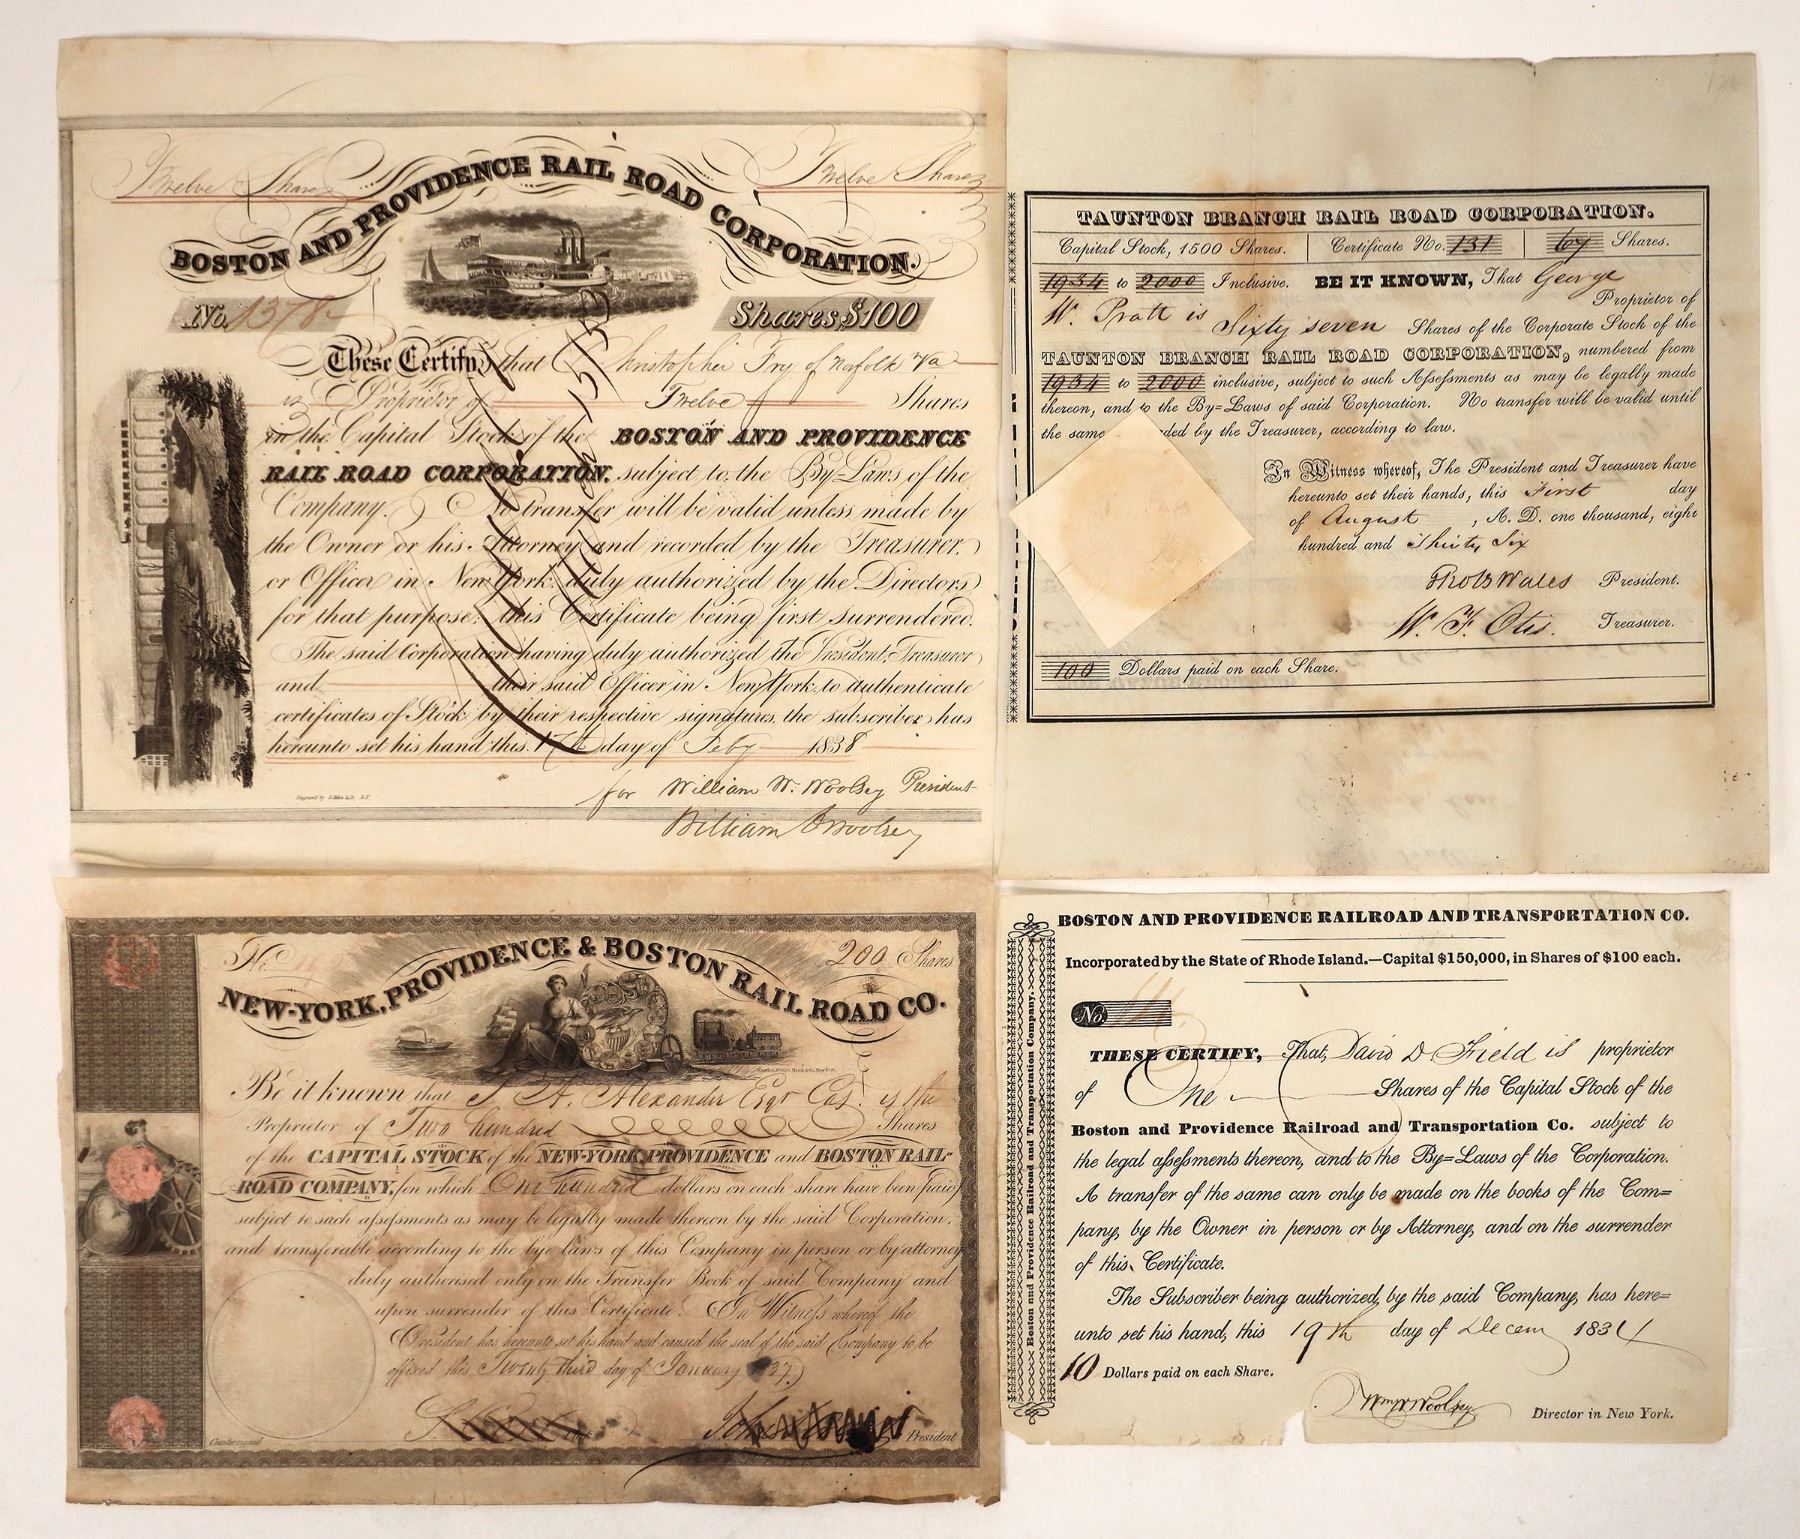 Twelve Shares
Twelve Shares
BOSTON AND PROVIDENCE RAIL ROAD CORPORATION.
No. 1378
Shares, $100
These Certify, that Christopher Fry of Norfolk Va
is Proprietor of Twelve Shares
in the Capital Stock of the BOSTON AND PROVIDENCE
RAIL ROAD CORPORATION, subject to the By-Laws of the
Company. No transfer will be valid unless made by
the Owner or his Attorney and recorded by the Treasurer
or Officer in New York duly authorized by the Directors
for that purpose: this Certificate being first surrendered.
The said Corporation having duly authorized the President, Treasurer
and their said Officer in New York to authenticate
certificates of Stock by their respective signatures, the subscriber has
hereunto set his hand this 17th day of Feby 1838
for William W. Woolsey President
William Woolsey
TAUNTON BRANCH RAIL ROAD CORPORATION.
Capital Stock, 1500 Shares. Certificate No. 131 67 Shares.
1934 to 2000 Inclusive. BE IT KNOWN, That George
W. Pratt is Sixty seven Proprietor of
Shares of the Corporate Stock of the
TAUNTON BRANCH RAIL ROAD CORPORATION, numbered from
1934 to 2000 inclusive, subject to such Assessments as may be legally made
thereon, and to the By=Laws of said Corporation. No transfer will be valid until
the same ded by the Treasurer, according to law.
In Witness whereof, The President and Treasurer have
hereunto set their hands, this First day
of August, A. D. one thousand, eight
hundred and Thirty Six
Wales President.
W. F. Otis. Treasurer.
100 Dollars paid on each Share.
No. 200 Shares
NEW-YORK, PROVIDENCE & BOSTON RAIL ROAD CO.
Be it known that J. A. Alexander Esqr Cas. is the
Proprietor of Two hundred Shares
of the CAPITAL STOCK of the NEW-YORK, PROVIDENCE and BOSTON RAIL-
ROAD COMPANY, on which One hundred dollars on each share have been paid
subject to such assessments as may be legally made thereon by the said Corporation,
and transferable according to the bye laws of this Company in person or by attorney
duly authorised only on the Transfer Book of said Company and
upon surrender of this Certificate. In Witness whereof the
President has hereunto set his hand and caused the seal of the said Company to be
affixed this Twenty third day of January 37
President
Countersigned
BOSTON AND PROVIDENCE RAILROAD AND TRANSPORTATION CO.
Incorporated by the State of Rhode Island.—Capital $150,000, in Shares of $100 each.
No.
THESE CERTIFY, That, David D Field is proprietor
of One Shares of the Capital Stock of the
Boston and Providence Railroad and Transportation Co. subject to
the legal assessments thereon, and to the By=Laws of the Corporation.
A transfer of the same can only be made on the books of the Com=
pany, by the Owner in person or by Attorney, and on the surrender
of this Certificate.
The Subscriber being authorized by the said Company, has here=
unto set his hand, this 19th day of Decem 1834
10 Dollars paid on each Share.
Wm W Woolsey Director in New York.
Boston and Providence Railroad and Transportation Company.